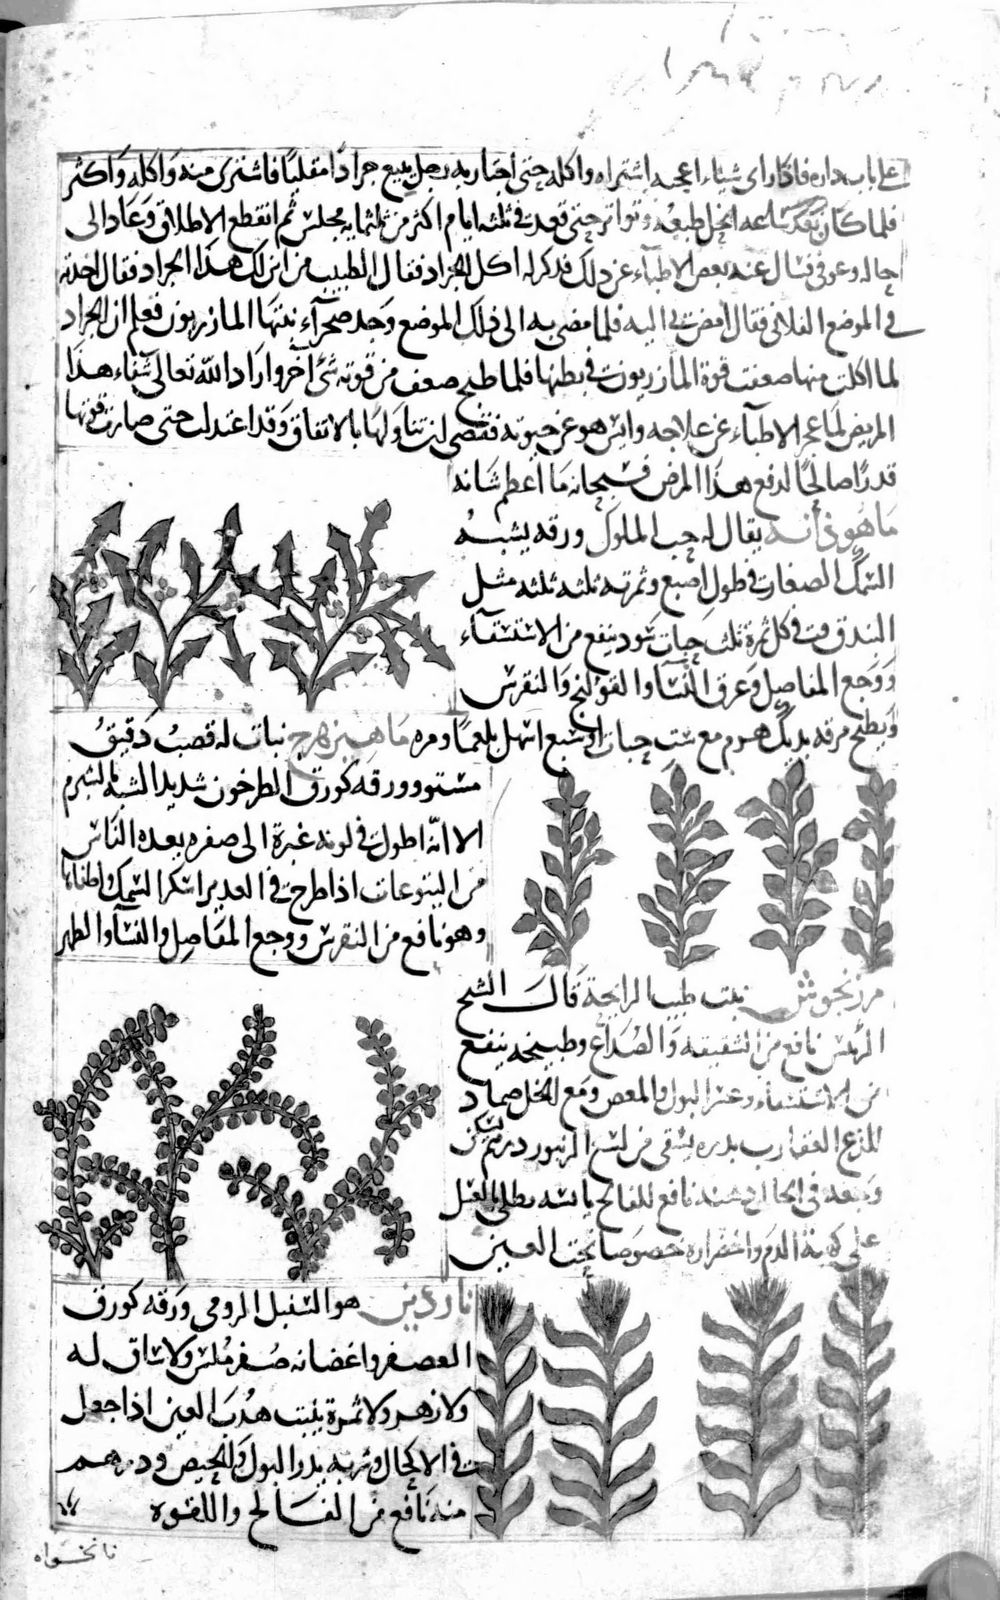 على باب داره فاذا راى شيئا اعجبه اشتراه واكله حتى اجتاز به رجل يبيع جرادا مقليا فاشترى منه واكله واكثر
فلما كان بعد ساعة انحل طبعه وتواتر حتى قعد فى ثلثه ايام اكثر من ثلثمايه مجلس ثم انقطع الاطلاق وعاد الى
حاله وعوفى فسال عنه بعض الاطباء عن ذلك فذكر له اكل الجراد فقال الطبيب من اين لك هذا الجراد فقال اخذته
فى الموضع الفلانى فقال امض بى اليه فلما مضى به الى ذلك الموضع وجد صحراء نبتها المازريون فعلم ان الجراد
لما اكلت منها ضعفت قوة المازريون فى بطنها فلما طبخ ضعف من قوته شئ آخر واراد الله تعالى شفاء هذا
المريض لما عجز الاطباء عن علاجه وايس هو عن حيوته فقضى ان تناولها بالاتفاق وقد اعتدلت حتى صارت قوتها
قدرا صالحا لدفع هذا المرض فسبحانه ما اعظم شانه
ماهودانه يقال له حب الملوك ورقه يشبه
السمك الصغار فى طول اصبع وثمرته ثلثه ثلثه مثل
البندق وفى كل ثمرة ثلث حبات سود ينفع من الاستسقاء
ووجع المفاصل وعرق النسا والقولنج والنقرس
ويطبخ مرقه بديك هرم مع ست حبات او سبع اسهل بلغما ومره ماهيزهرج نبات له قصب دقيق
مستو وورقه كورق الطرخون شديد الشبه بالشبرم
الا انه اطول فى لونه غبرة الى صفره بعده الناس
من اليتوعات اذا طرح فى الغدير اسكر السمك واطفاها
وهو نافع من النقرس ووجع المفاصل والنسا والظهر
مرزنجوش نبت طيب الرايحة قال الشيخ
الرئيس نافع من الشقيقه والصداع وطبيخه ينفع
من الاستسقاء وعسر البول والمغص ومع الخل ضماد
للذع العقارب بذره يسقى من لسع الزنبور درهمين
نافع للفالج يابسه يطلى بالعسل
على كهبة الدم واخضراره خصوصا تحت العين
ناردين هو السنبل الرومى ورقه كورق
العصفر واغصانه صفر ملس ولا ساق له
ولا زهر ولا ثمرة ينبت هدب العين اذا جعل
فى الاكحال وشربه يدر البول والحيض ودرهم
منه نافع من الفالج واللقوه
نانخواه